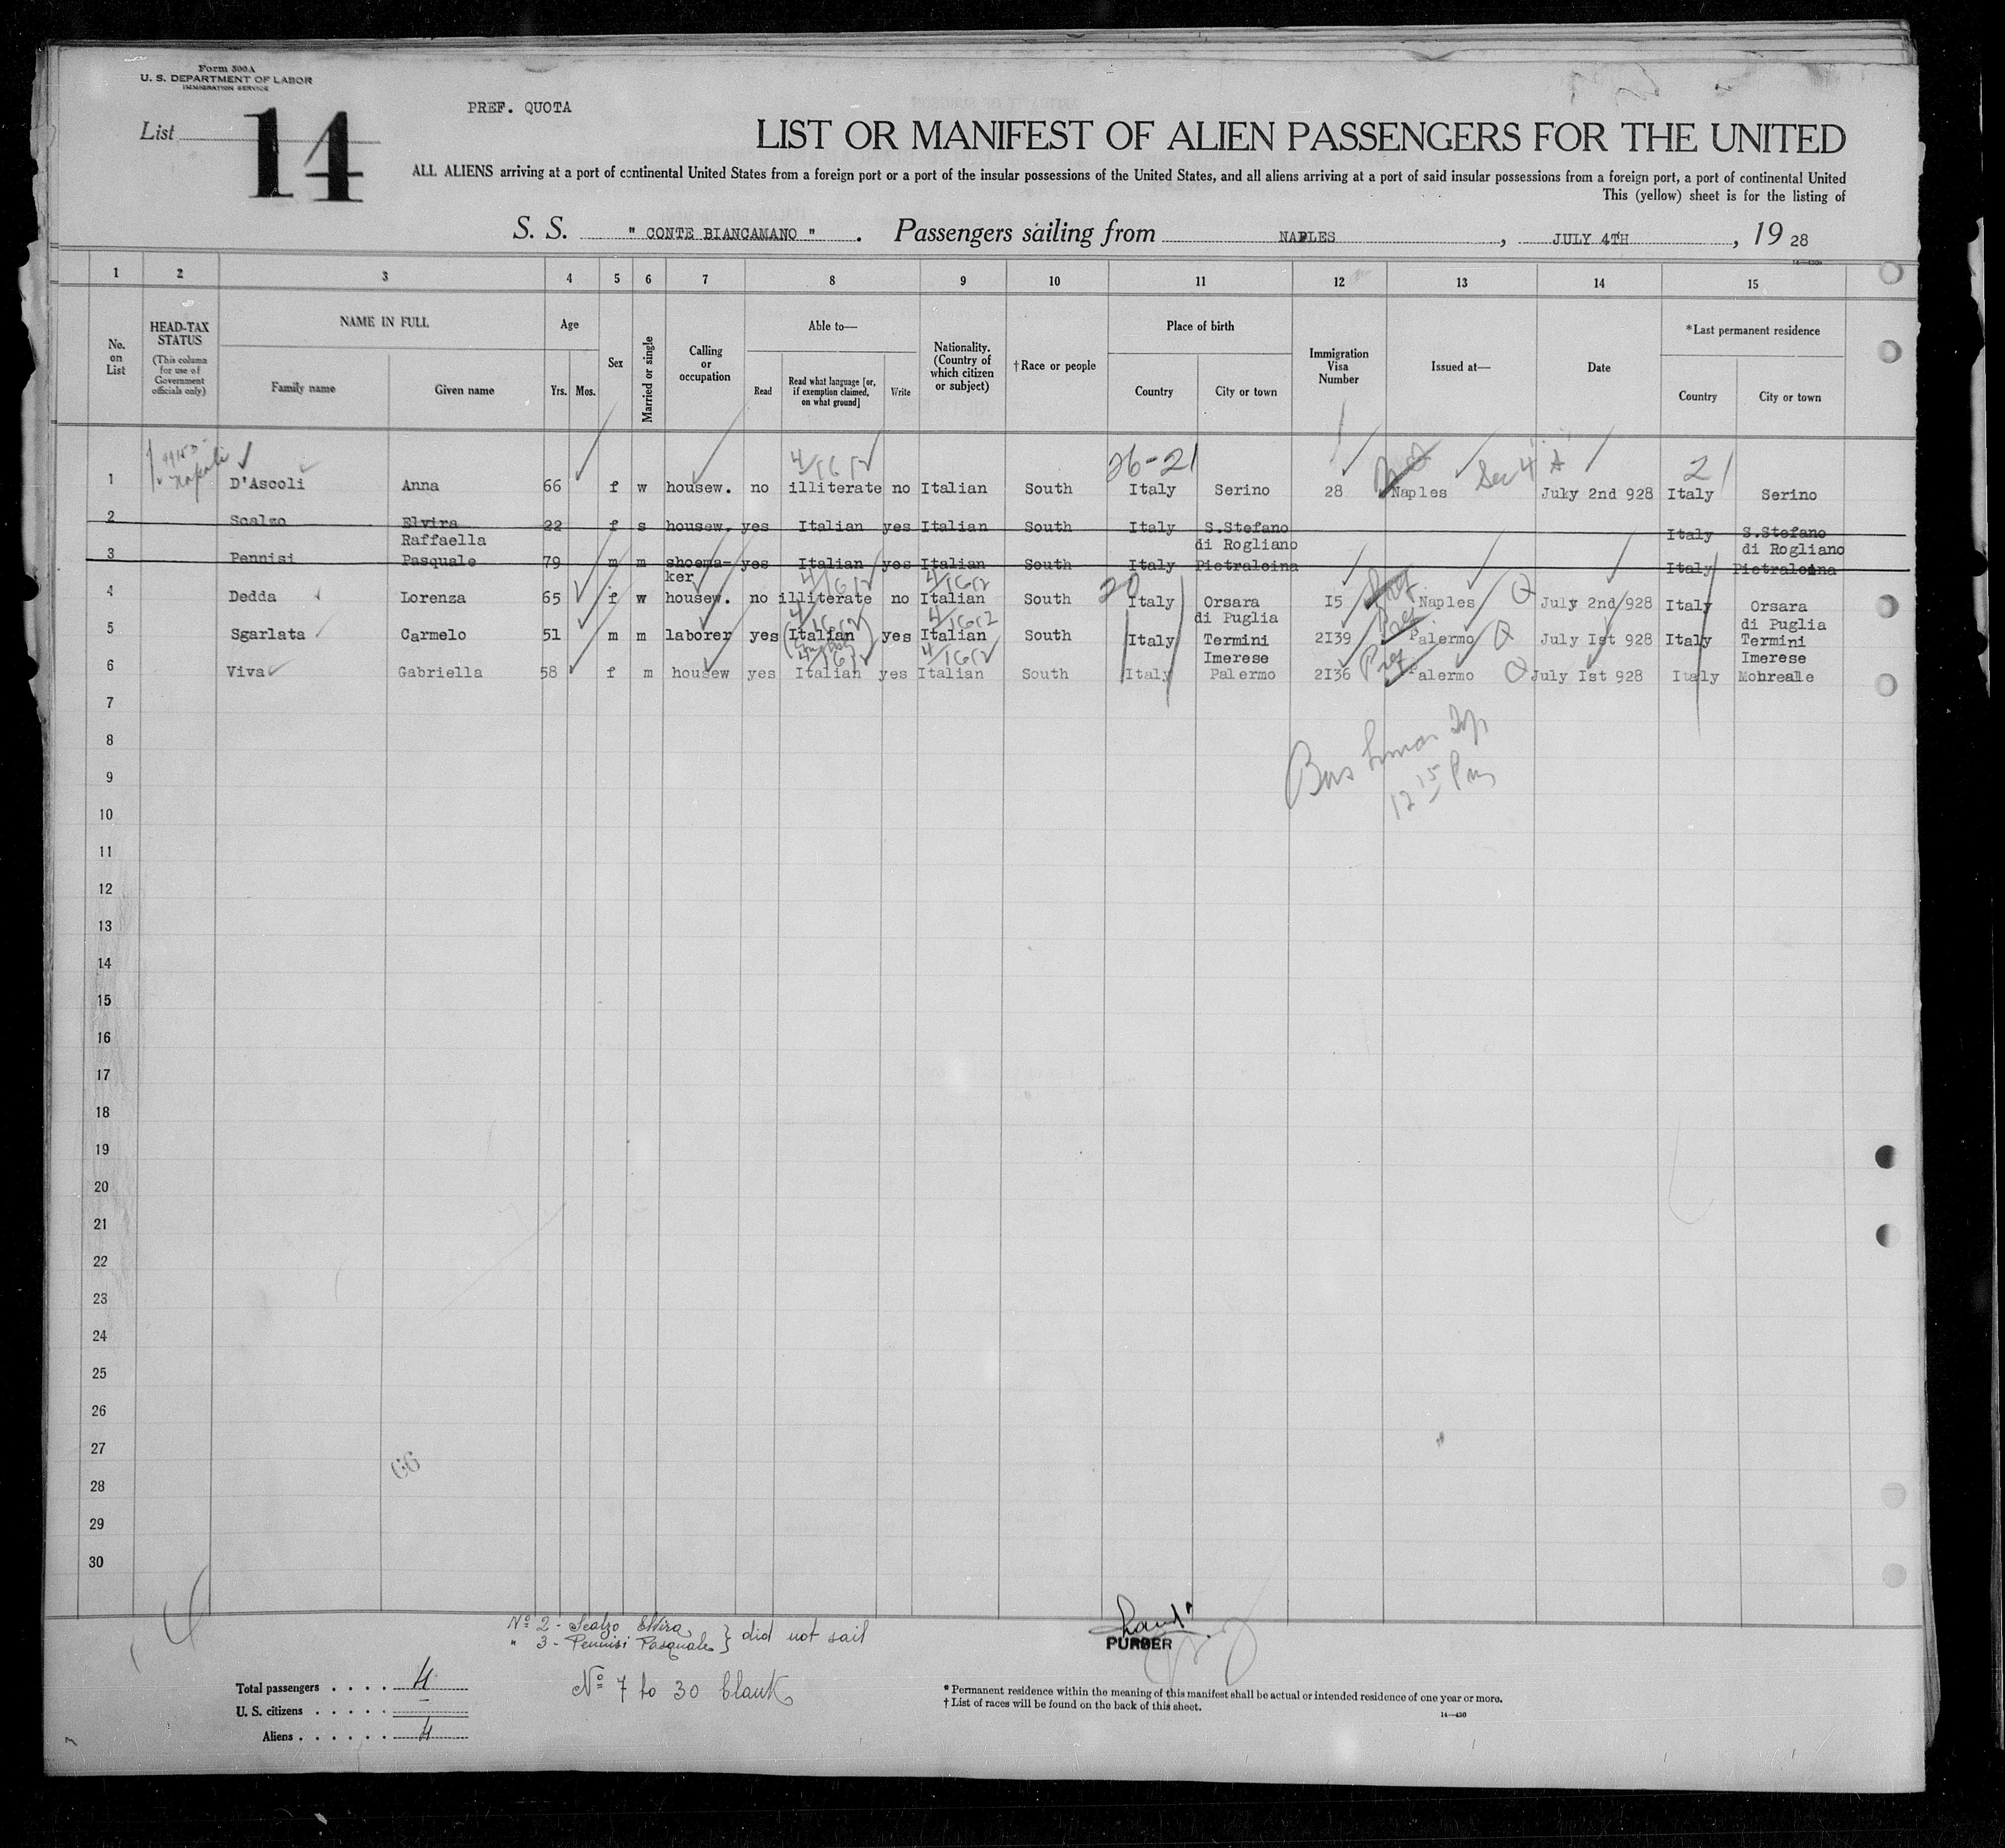 Form 500A
U. S. DEPARTMENT OF LABOR
IMMIGRATION SERVICE
List 14
PREF. QUOTA
LIST OR MANIFEST OF ALIEN PASSENGERS FOR THE UNITED
ALL ALIENS arriving at a port of continental United States from a foreign port or a port of the insular possessions of the United States, and all aliens arriving at a port of said insular possessions from a foreign port, a port of continental United
This (yellow) sheet is for the listing of
S. S. " CONTE BIANCAMANO " . Passengers sailing from NAPLES , JULY 4TH , 19 28
1 2 3 4 5 6 7 8 9 10 11 12 13 14 15
No. on List
HEAD-TAX STATUS (This column for use of Government officials only)
NAME IN FULL
Family name Given name
Age
Yrs. Mos.
Sex
Married or single
Calling or occupation
Able to—
Read Read what language [or, if exemption claimed, on what ground] Write
Nationality. (Country of which citizen or subject)
†Race or people
Place of birth
Country City or town
Immigration Visa Number
Issued at—
Date
*Last permanent residence
Country City or town
26-21 Sec 4 A 21
1 D'Ascoli Anna 66 f w housew. no illiterate no Italian South Italy Serino 28 Naples Juky 2nd 928 Italy Serino
2 Scalzo Elvira Raffaella 22 f s housew. yes Italian yes Italian South Italy S.Stefano di Rogliano Italy S.Stefano di Rogliano
3 Pennisi Pasquale 79 m m shoema-ker yes Italian yes Italian South Italy Pietraloina Italy Pietraloina
4 Dedda Lorenza 65 f w housew. no illiterate no Italian South 20 Italy Orsara di Puglia I5 Naples Q July 2nd 928 Italy Orsara di Puglia
5 Sgarlata Carmelo 51 m m laborer yes Italian yes Italian South Italy Termini Imerese 2I39 Palermo Q July Ist 928 Italy Termini Imerese
6 Viva Gabriella 58 f m housew yes Italian yes Italian South Italy Palermo 2I36 Pref Palermo Q July Ist 928 Italy Monreale
7
8
9
12 15 Pm
10
11
12
13
14
15
16
17
18
19
20
21
22
23
24
25
26
27
66
28
29
30
Nº 2 - Scalzo Elvira
" 3 - Pennisi Pasquale } did not sail
PURSER
Nº 7 to 30 blank
Total passengers . . . . 4
U. S. citizens . . . . . —
Aliens . . . . . . 4
* Permanent residence within the meaning of this manifest shall be actual or intended residence of one year or more.
† List of races will be found on the back of this sheet.
14—430